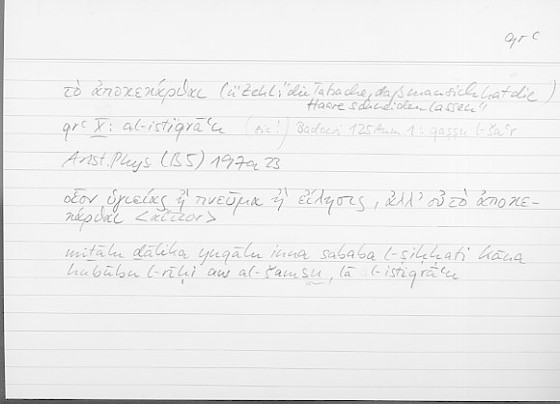 gr c
τὸ ἀποκεκάρθαι (ü"Zekl:"die Tatsache, daß man sich hat die
Haare schneiden lassen")
gr c X: al-istiqrāʾu (sic!) Badawi 125 Anm 1: qaṣṣu l-šaʿr
Arist. Phys (B5) 197a 23
οἷον ὑγιείας ἢ πνεῦμα ἢ εἵλησις, ἀλλ' οὐ τὸ ἀποκε-
κάρθαι <αἴτιον>
miṯālu ḏālika yuqālu inna sababa l-ṣiḥḥati kāna
hubūbu l-rīḥi aw al-šamsu, lā l-istiqrāʾu